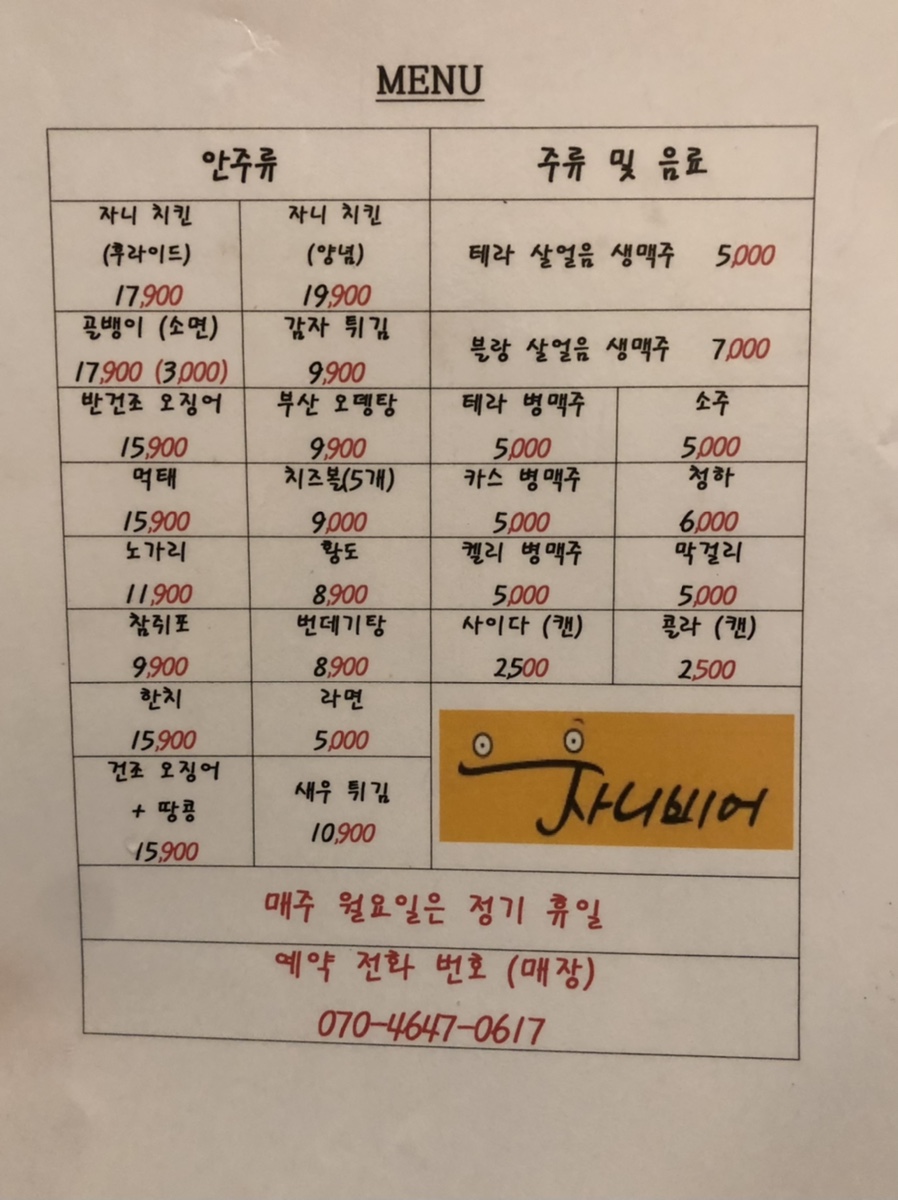 MENU
안주류
주류 및 음료
자니 치킨
(후라이드)
17,900
자니 치킨
(양념)
19,900
테라 살얼음 생맥주 5,000
골뱅이 (소면)
17,900 (3,000)
감자 튀김
9,900
블랑 살얼음 생맥주 7,000
반건조 오징어
15,900
부산 오뎅탕
9,900
테라 병맥주
5,000
소주
5,000
먹태
15,900
치즈볼(5개)
9,000
카스 병맥주
5,000
청하
6,000
노가리
11,900
황도
8,900
켈리 병맥주
5,000
막걸리
5,000
참쥐포
9,900
번데기탕
8,900
사이다 (캔)
2,500
콜라 (캔)
2,500
한치
15,900
라면
5,000
건조 오징어
+ 땅콩
15,900
새우 튀김
10,900
자니비어
매주 월요일은 정기 휴일
예약 전화 번호 (매장)
070-4647-0617